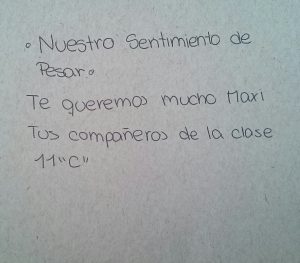 ° Nuestro Sentimiento de
Pesar°
Te queremos mucho Maxi
Tus compañeros de la clase
11"C"